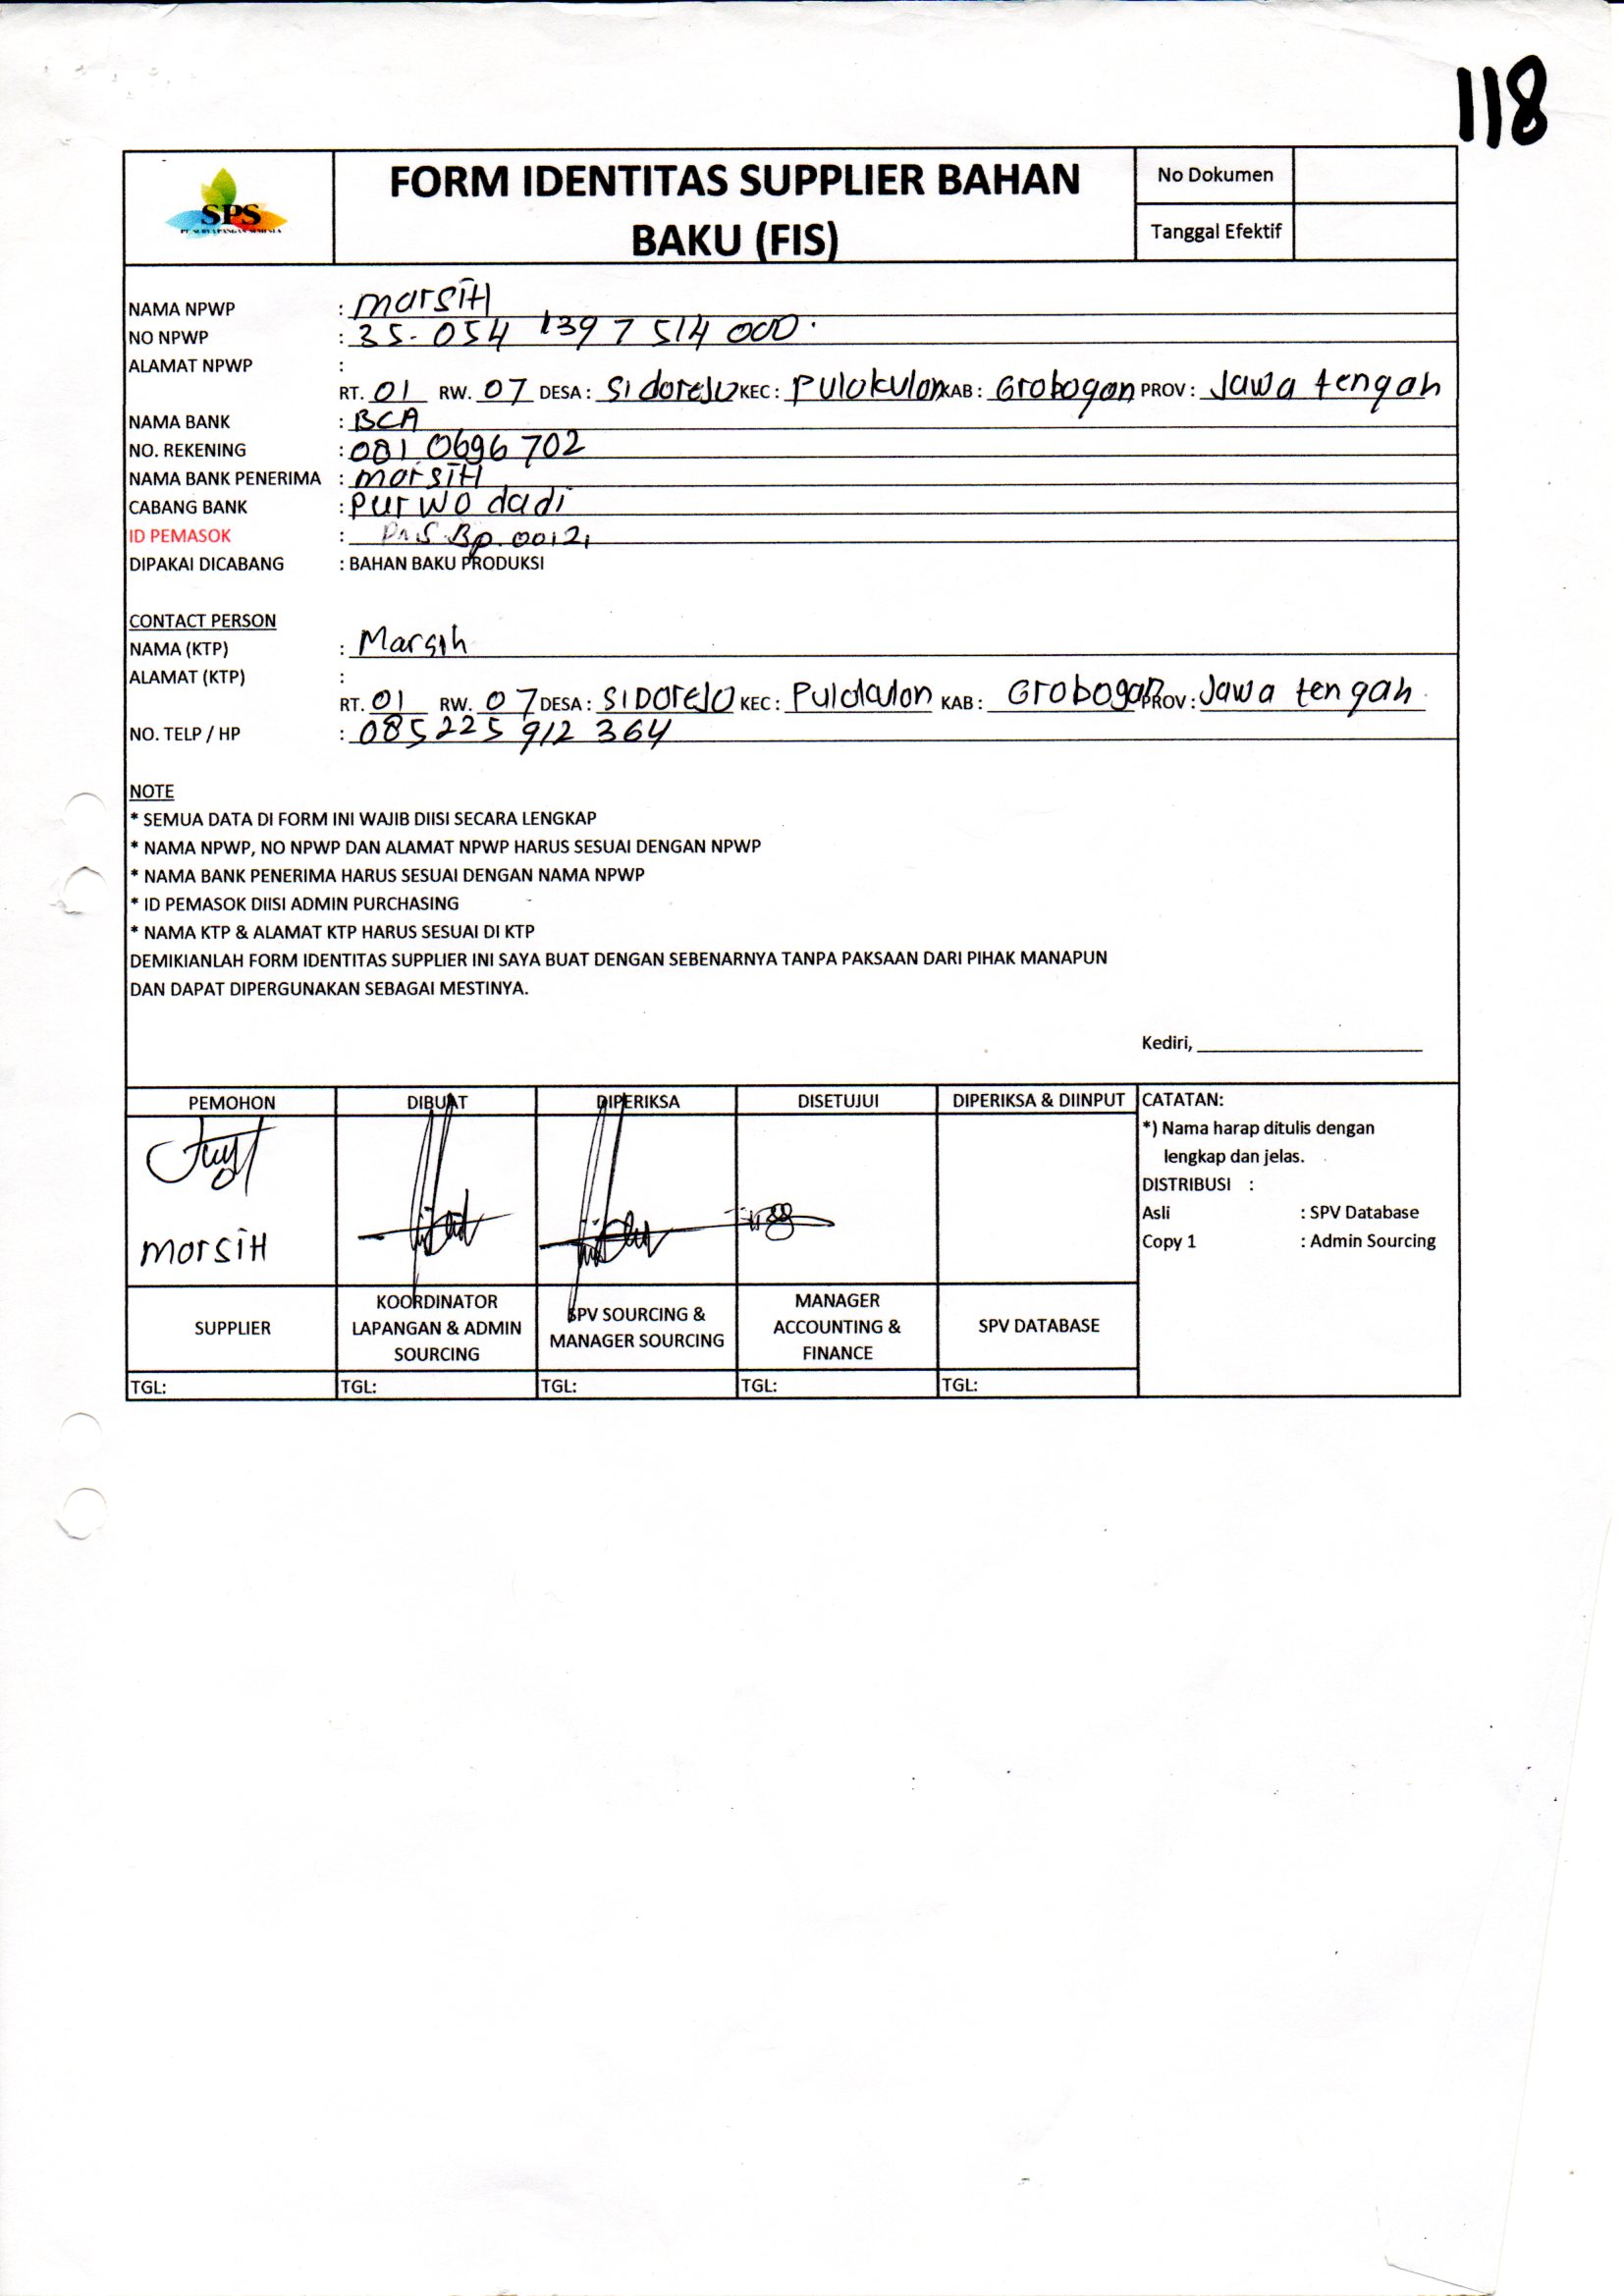 118
SPS
PT. SURYA PANGAN SEMESTA
FORM IDENTITAS SUPPLIER BAHAN
BAKU (FIS)
No Dokumen
Tanggal Efektif
NAMA NPWP : marsiH
NO NPWP : 35. 054 139 7 514 000.
ALAMAT NPWP :
RT. 01 RW. 07 DESA : Sidorejo KEC : Pulokulon KAB : Grobogan PROV : Jawa tengah
NAMA BANK : BCA
NO. REKENING : 081 0696 702
NAMA BANK PENERIMA : marsiH
CABANG BANK : purwo dadi
ID PEMASOK : Bp. 00121
DIPAKAI DICABANG : BAHAN BAKU PRODUKSI
CONTACT PERSON
NAMA (KTP) : Marsih
ALAMAT (KTP) :
RT. 01 RW. 07 DESA : SIDOREJO KEC : Pulokulon KAB : Grobogan PROV : Jawa tengah
NO. TELP / HP : 085225 912 364
NOTE
* SEMUA DATA DI FORM INI WAJIB DIISI SECARA LENGKAP
* NAMA NPWP, NO NPWP DAN ALAMAT NPWP HARUS SESUAI DENGAN NPWP
* NAMA BANK PENERIMA HARUS SESUAI DENGAN NAMA NPWP
* ID PEMASOK DIISI ADMIN PURCHASING
* NAMA KTP & ALAMAT KTP HARUS SESUAI DI KTP
DEMIKIANLAH FORM IDENTITAS SUPPLIER INI SAYA BUAT DENGAN SEBENARNYA TANPA PAKSAAN DARI PIHAK MANAPUN
DAN DAPAT DIPERGUNAKAN SEBAGAI MESTINYA.
Kediri,
PEMOHON DIBUAT DIPERIKSA DISETUJUI DIPERIKSA & DIINPUT
marsiH
SUPPLIER
KOORDINATOR
LAPANGAN & ADMIN
SOURCING
SPV SOURCING &
MANAGER SOURCING
MANAGER
ACCOUNTING &
FINANCE
SPV DATABASE
TGL: TGL: TGL: TGL: TGL:
CATATAN:
*) Nama harap ditulis dengan
lengkap dan jelas.
DISTRIBUSI :
Asli : SPV Database
Copy 1 : Admin Sourcing